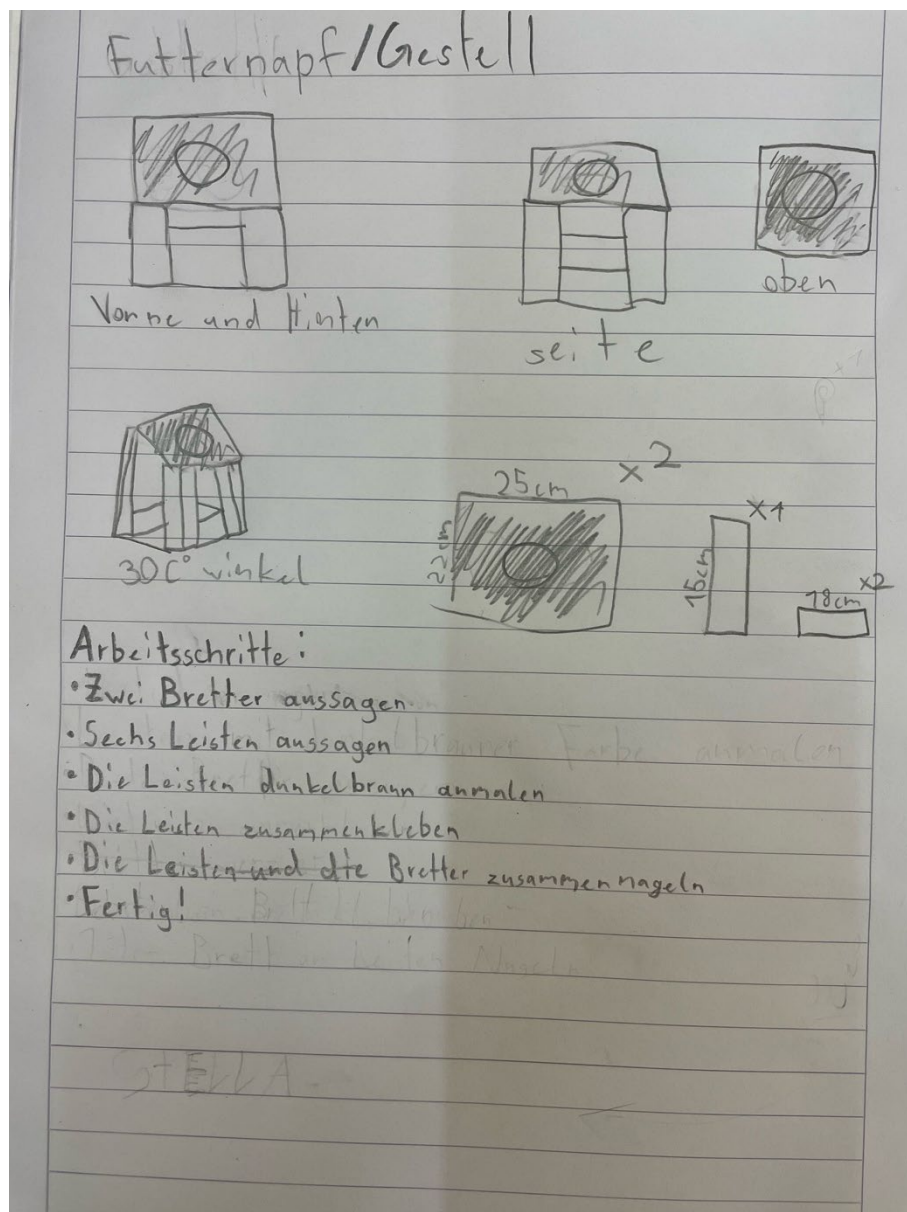 Futternapf/Gestell
oben
Vorne und Hinten
seite
x2
25cm
22cm
x1
15cm
x2
18cm
30C° winkel
Arbeitsschritte:
• Zwei Bretter aussagen
• Sechs Leisten aussagen
• Die Leisten dunkelbraun anmalen
• Die Leisten zusammenkleben
• Die Leisten und die Bretter zusammennageln
• Fertig!
STELLA